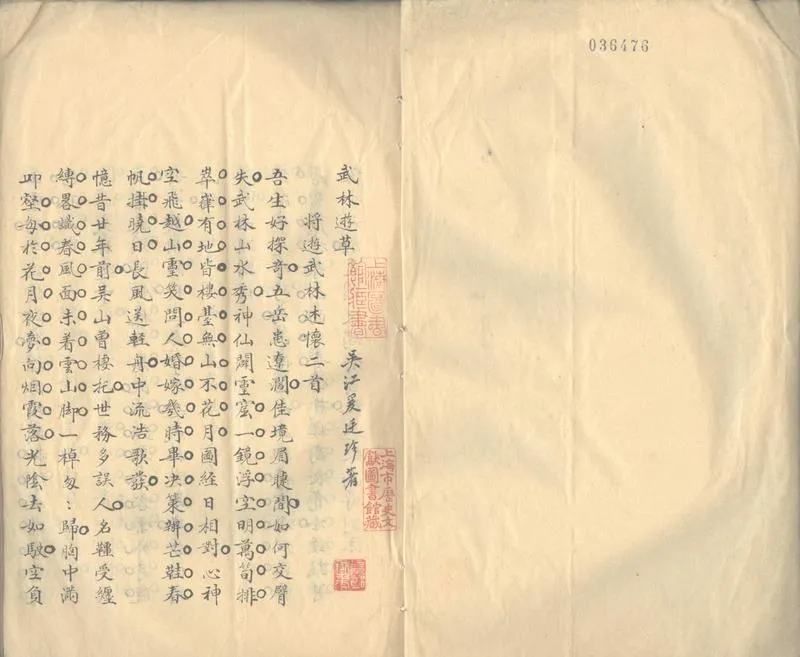 036476
武林遊草
吳江 廷珍著
將遊武林述懷二首
吾生好探奇五岳患遼濶佳境眉睫間如何交臂
失武林山水秀神仙闢靈窟一鏡浮空明萬笏排
崒嵂有地皆樓臺無山不花月圖經日相對心神
空飛越山靈笑問人婚嫁幾時畢决策辦芒鞋春
帆掛曉日長風送輕舟中流浩歌發
憶昔廿年前吳山曾棲托世務多誤人名韁受纏
縛畧識春風面未着雲山脚一棹匆〻歸胸中滿
邱壑每於花月夜夢向烟霞落光陰去如駛空負
上海圖書館藏書
上海市歷史文獻圖書館藏